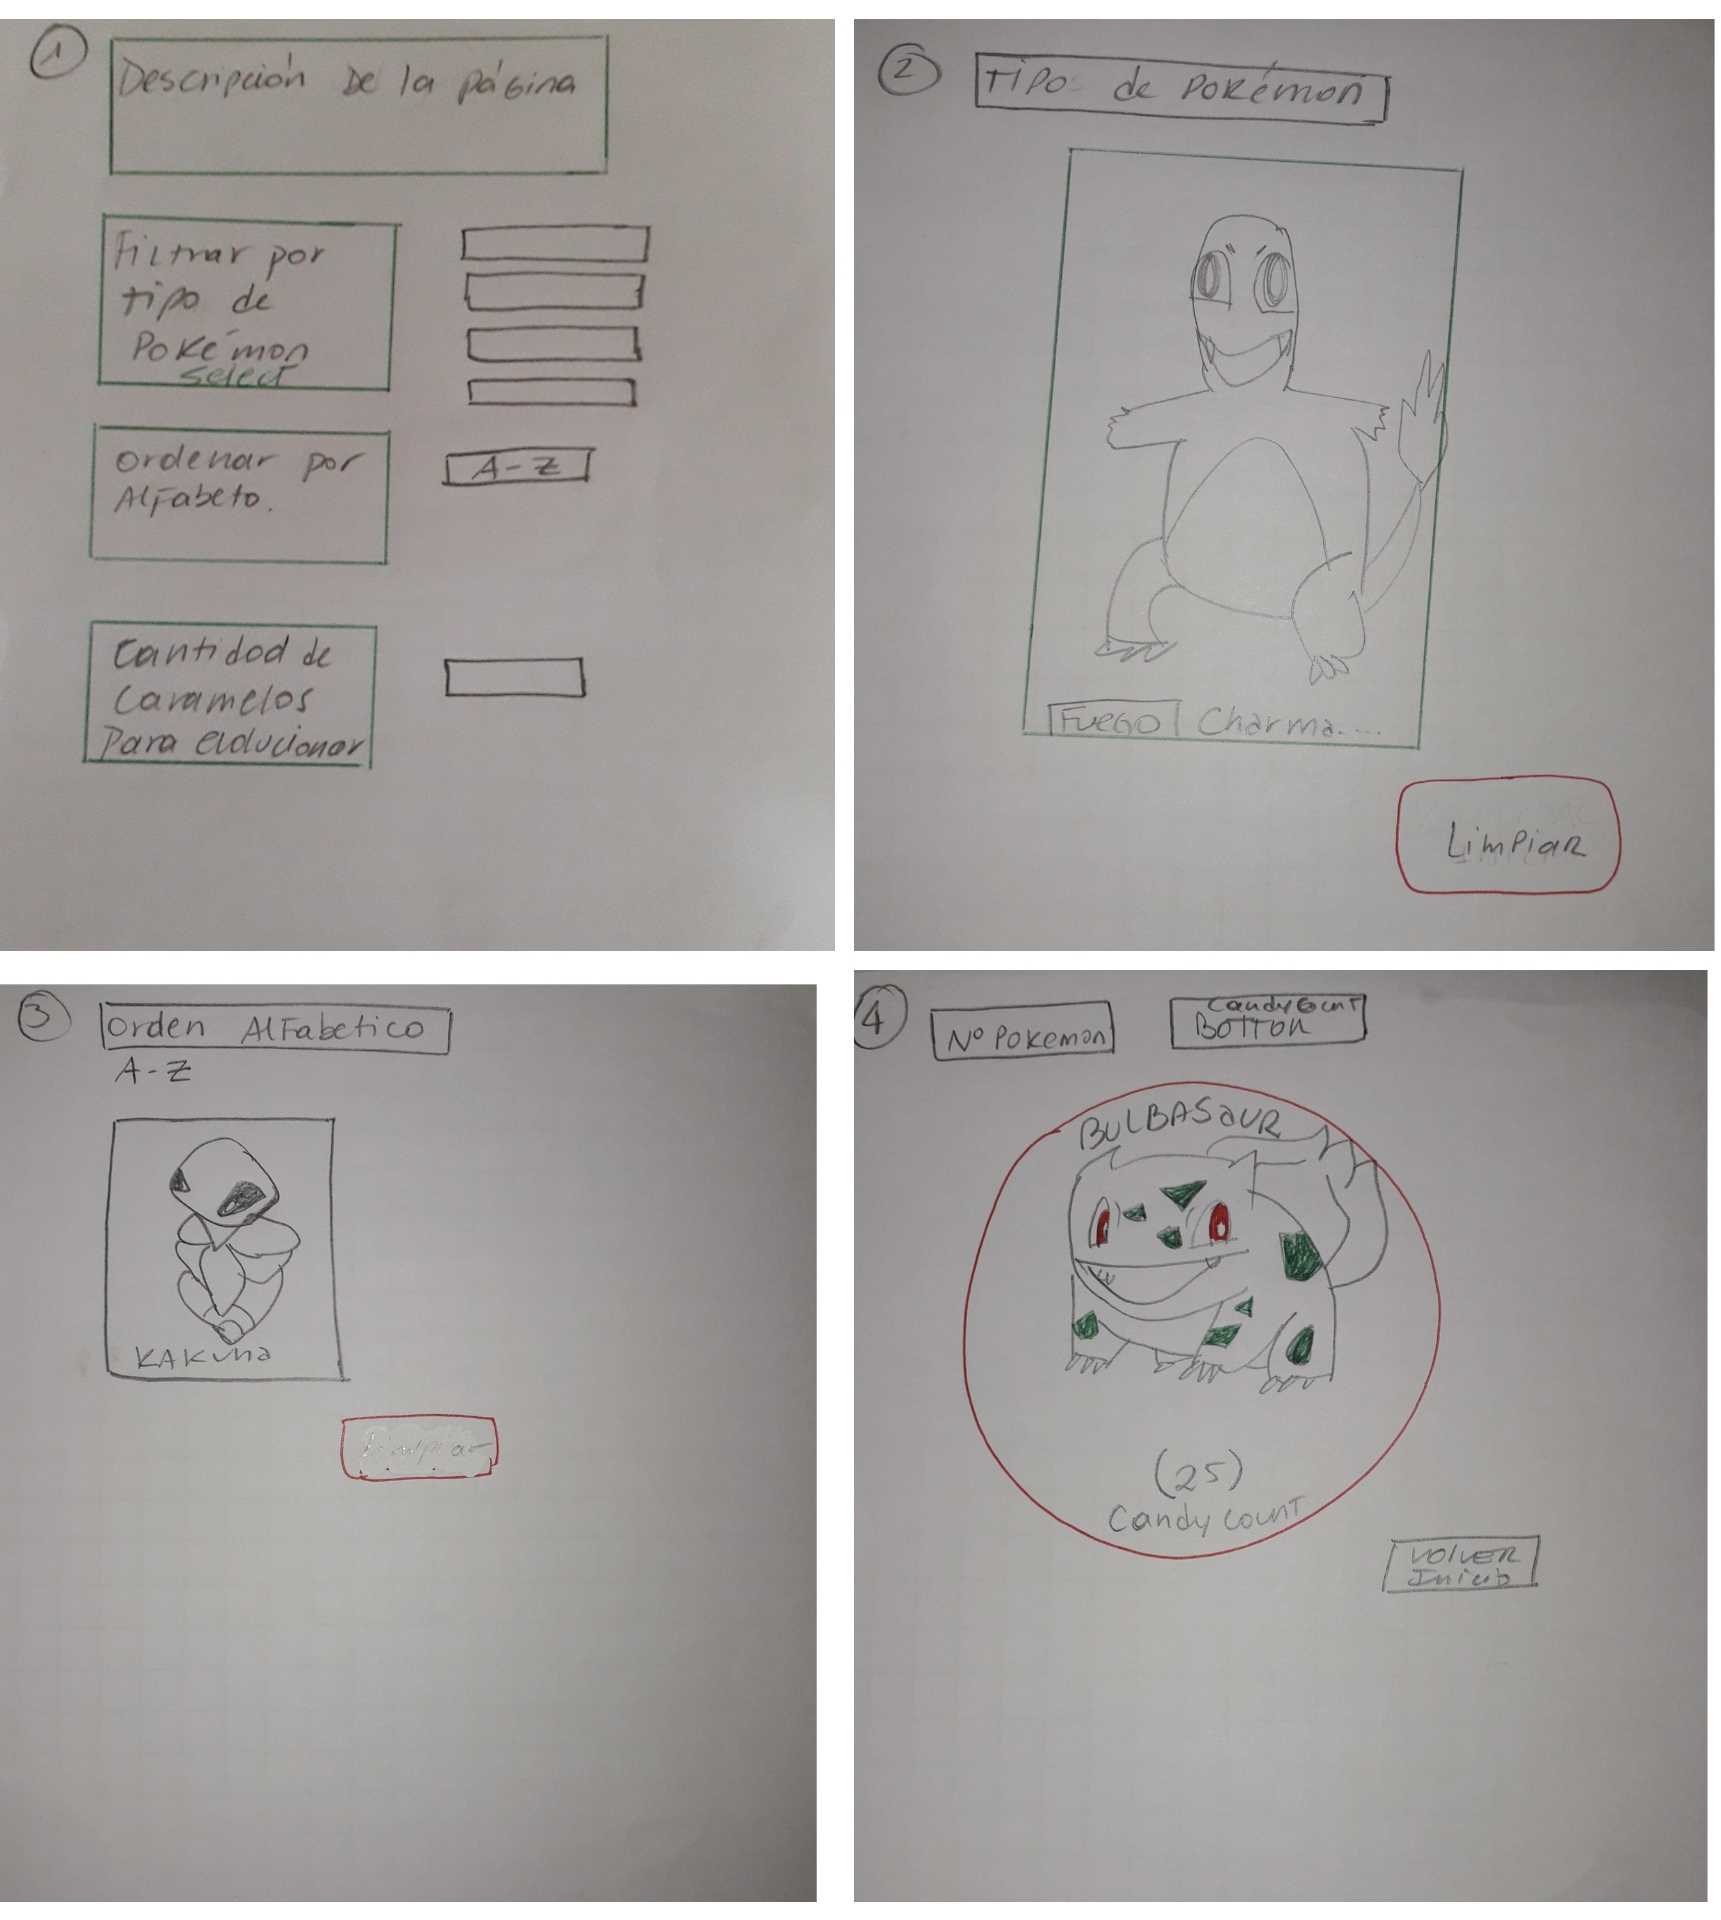 1
Descripción De la página
Filtrar por
tipo de
Pokémon
select
ordenar por
Alfabeto.
A-Z
Cantidad de
Caramelos
Para evolucionar
2
Tipos de Pokémon
Fuego Charma....
Limpiar
3
Orden Alfabetico
A-Z
KAKUna
Limpiar
4
Nº Pokemon
Candy Count
BOTTON
BULBASaUR
(25)
Candy Count
VOLVER
Inicio